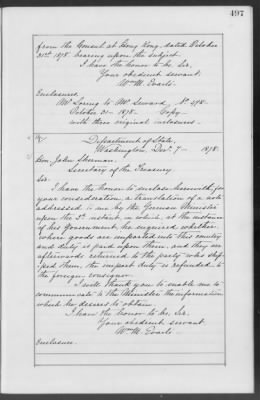 497
from the Consul at Hong Kong, dated October
31st 1878 bearing upon the subject.
I have the honor to be, Sir,
Your obedient servant,
Wm M. Evarts.
Enclosures.
Mr Loring to Mr Seward, No 498.
October 31 - 1878. Copy -
with three original enclosures.
Department of State,
Washington, Dec. 7 - 1878.
Hon. John Sherman.
Secretary of the Treasury.
Sir.
I have the honor to enclose herewith, for
your consideration, a translation of a note
addressed to me by the German Minister
upon the 3d instant, in which, at the instance
of his Government, he enquired whether,
where goods are imported into this country
and duty is paid upon them, and they are
afterwards returned to the party who ship-
ped them, the import duty is refunded to
the foreign consignor.
I will thank you to enable me to
communicate to the Minister the information
which he desires to obtain.
I have the honor to be, Sir,
Your obedient servant,
Wm M. Evarts.
Enclosure.